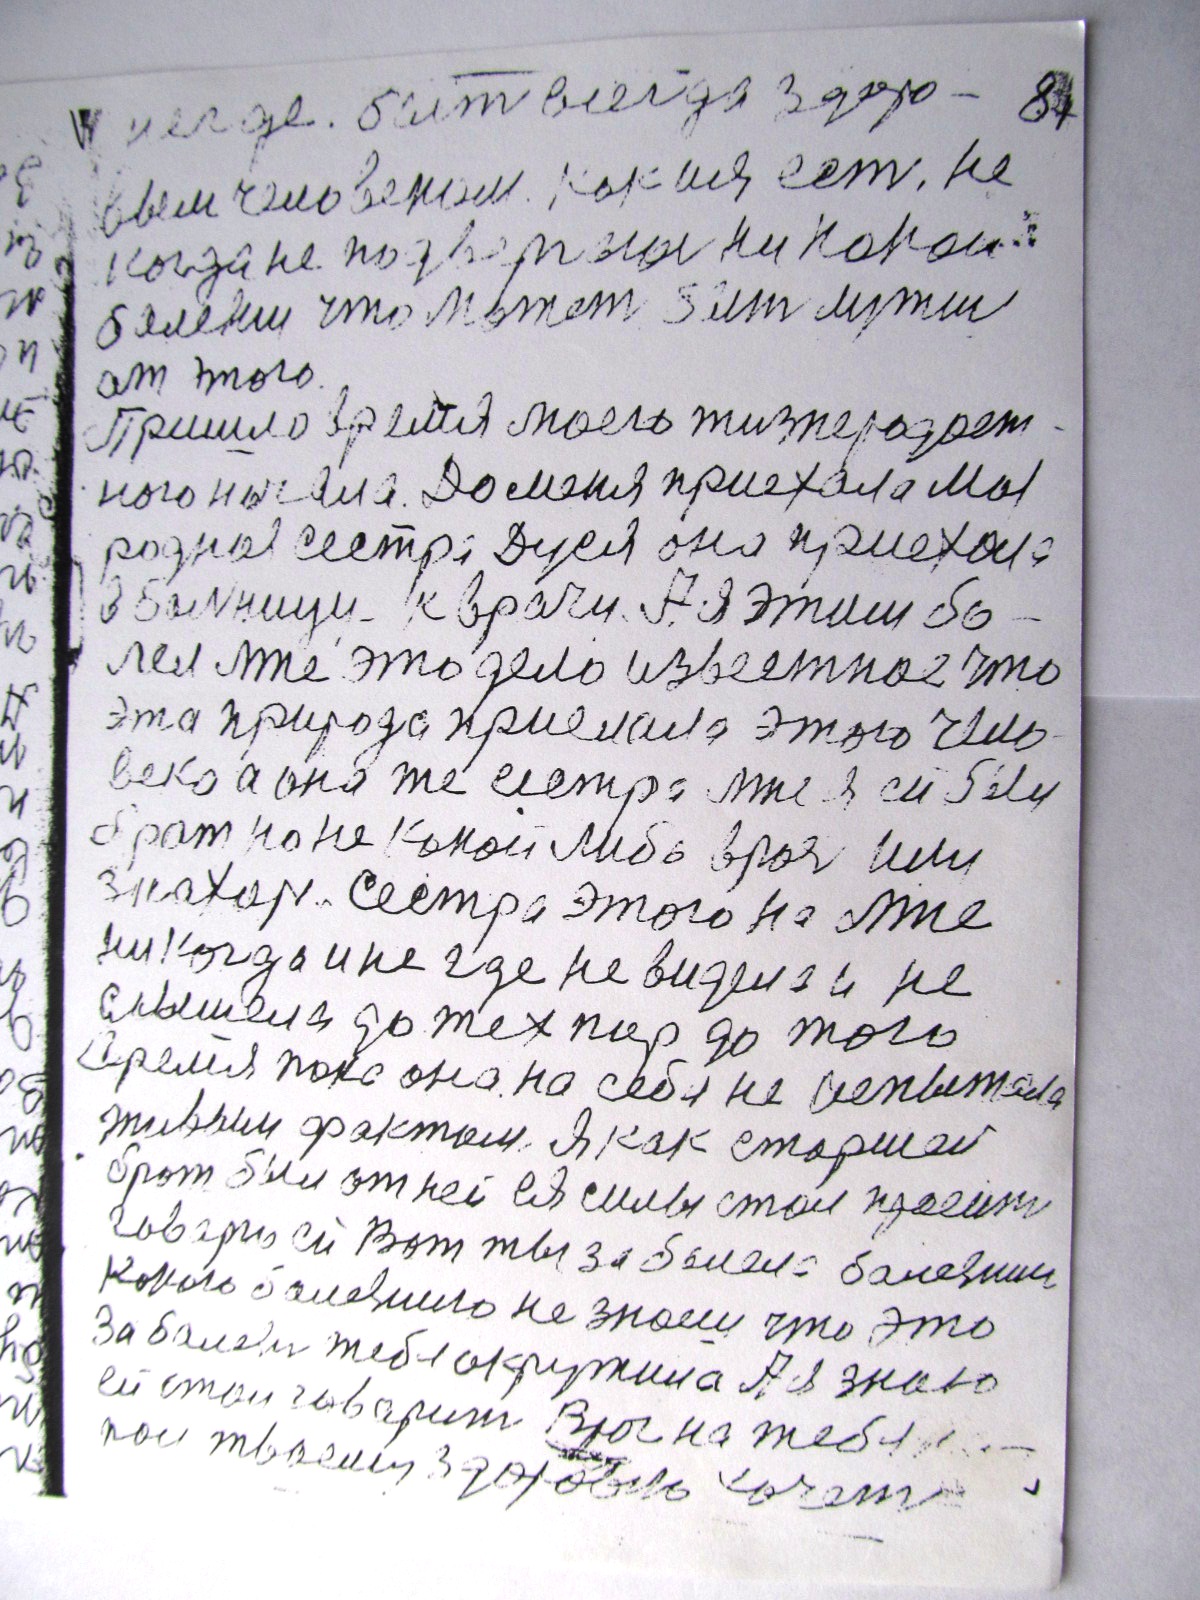 негде. быт всегда здоро- 84
вым человеком. как ия ест. не
когда не подвергнон никакой
болезни что можот быт лутши
от этого.
Пришло время моего жизнерадост-
ного начала. До меня приехала моя
родная сестра Дуся она приехала
в болницу к врачу. А я этим бо-
лел мне это дело известное что
эта природа прислала этого чило-
века а она же сестра мне я ей был
брат но не какой либо врач или
знахар. Сестра этого на мне
никогда и не где не видела и не
слышела до тех пор до того
время пока она на себя не испытала
живым фактом. Я как старшей
брат был от ней ея силы стал просит
говарю ей Вот ты заболела болезнию
какого болезнию не знаеш что это
за болезн тебя окружила А я знаю
ей стал говарит Враг на тебя
пои твоему здоровю хочет